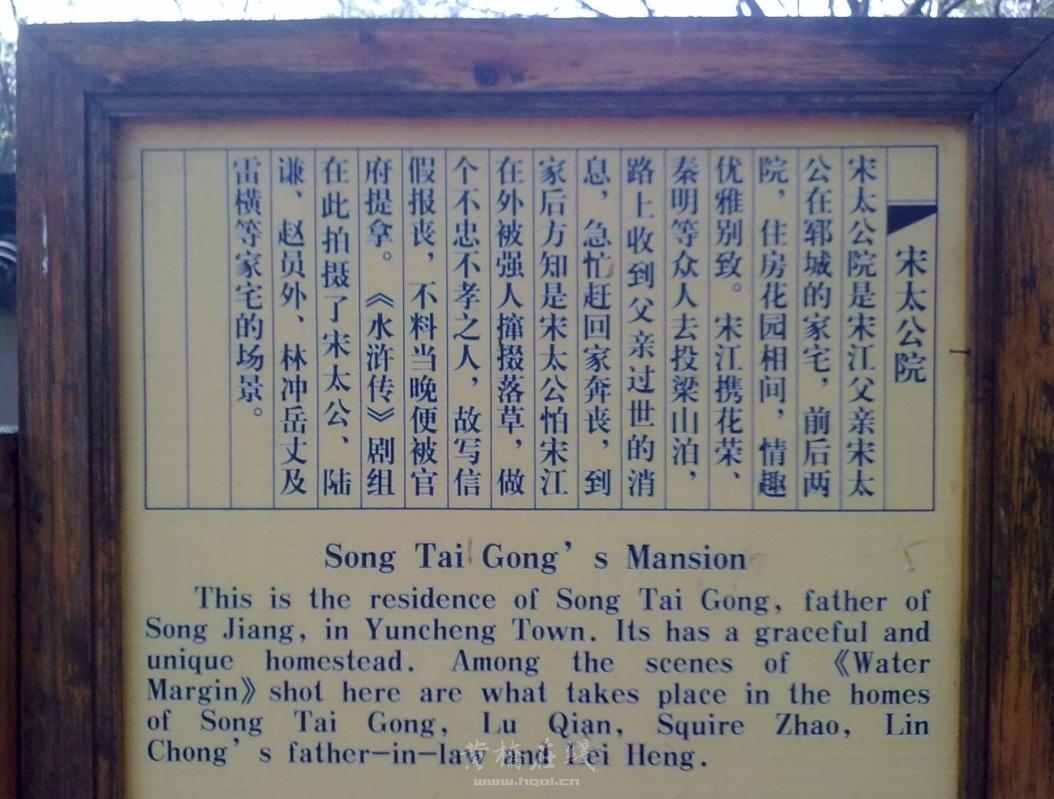 宋太公院
宋太公院是宋江父亲宋太
公在郓城的家宅，前后两
院，住房花园相间，情趣
优雅别致。宋江携花荣、
秦明等众人去投梁山泊，
路上收到父亲过世的消
息，急忙赶回家奔丧，到
家后方知是宋太公怕宋江
在外被强人撺掇落草，做
个不忠不孝之人，故写信
假报丧，不料当晚便被官
府提拿。《水浒传》剧组
在此拍摄了宋太公、陆
谦、赵员外、林冲岳丈及
雷横等家宅的场景。
Song Tai Gong's Mansion
This is the residence of Song Tai Gong, father of
Song Jiang, in Yuncheng Town. Its has a graceful and
unique homestead. Among the scenes of 《Water
Margin》shot here are what takes place in the homes
of Song Tai Gong, Lu Qian, Squire Zhao, Lin
Chong's father-in-law and Lei Heng.
黄梅在线
www.hqol.cn